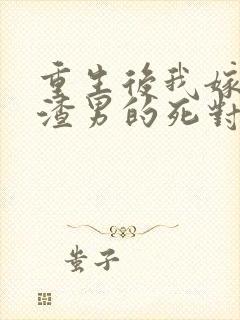 重生後我嫁
渣男的死對
蚩子